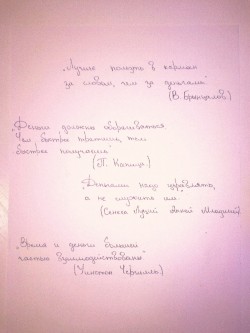 „Лучше полезть в карман
за словом, чем за деньгами"
(В. Брынцалов)
„Деньги должны оборачиваться.
Чем быстрее тратишь, тем
быстрее получаешь"
(П. Капица)
„Деньгами надо управлять,
а не служить им.
(Сенека Луций Анней Младший)
„Время и деньги большей
частью взаимодействованы"
(Уинстон Черчилль)